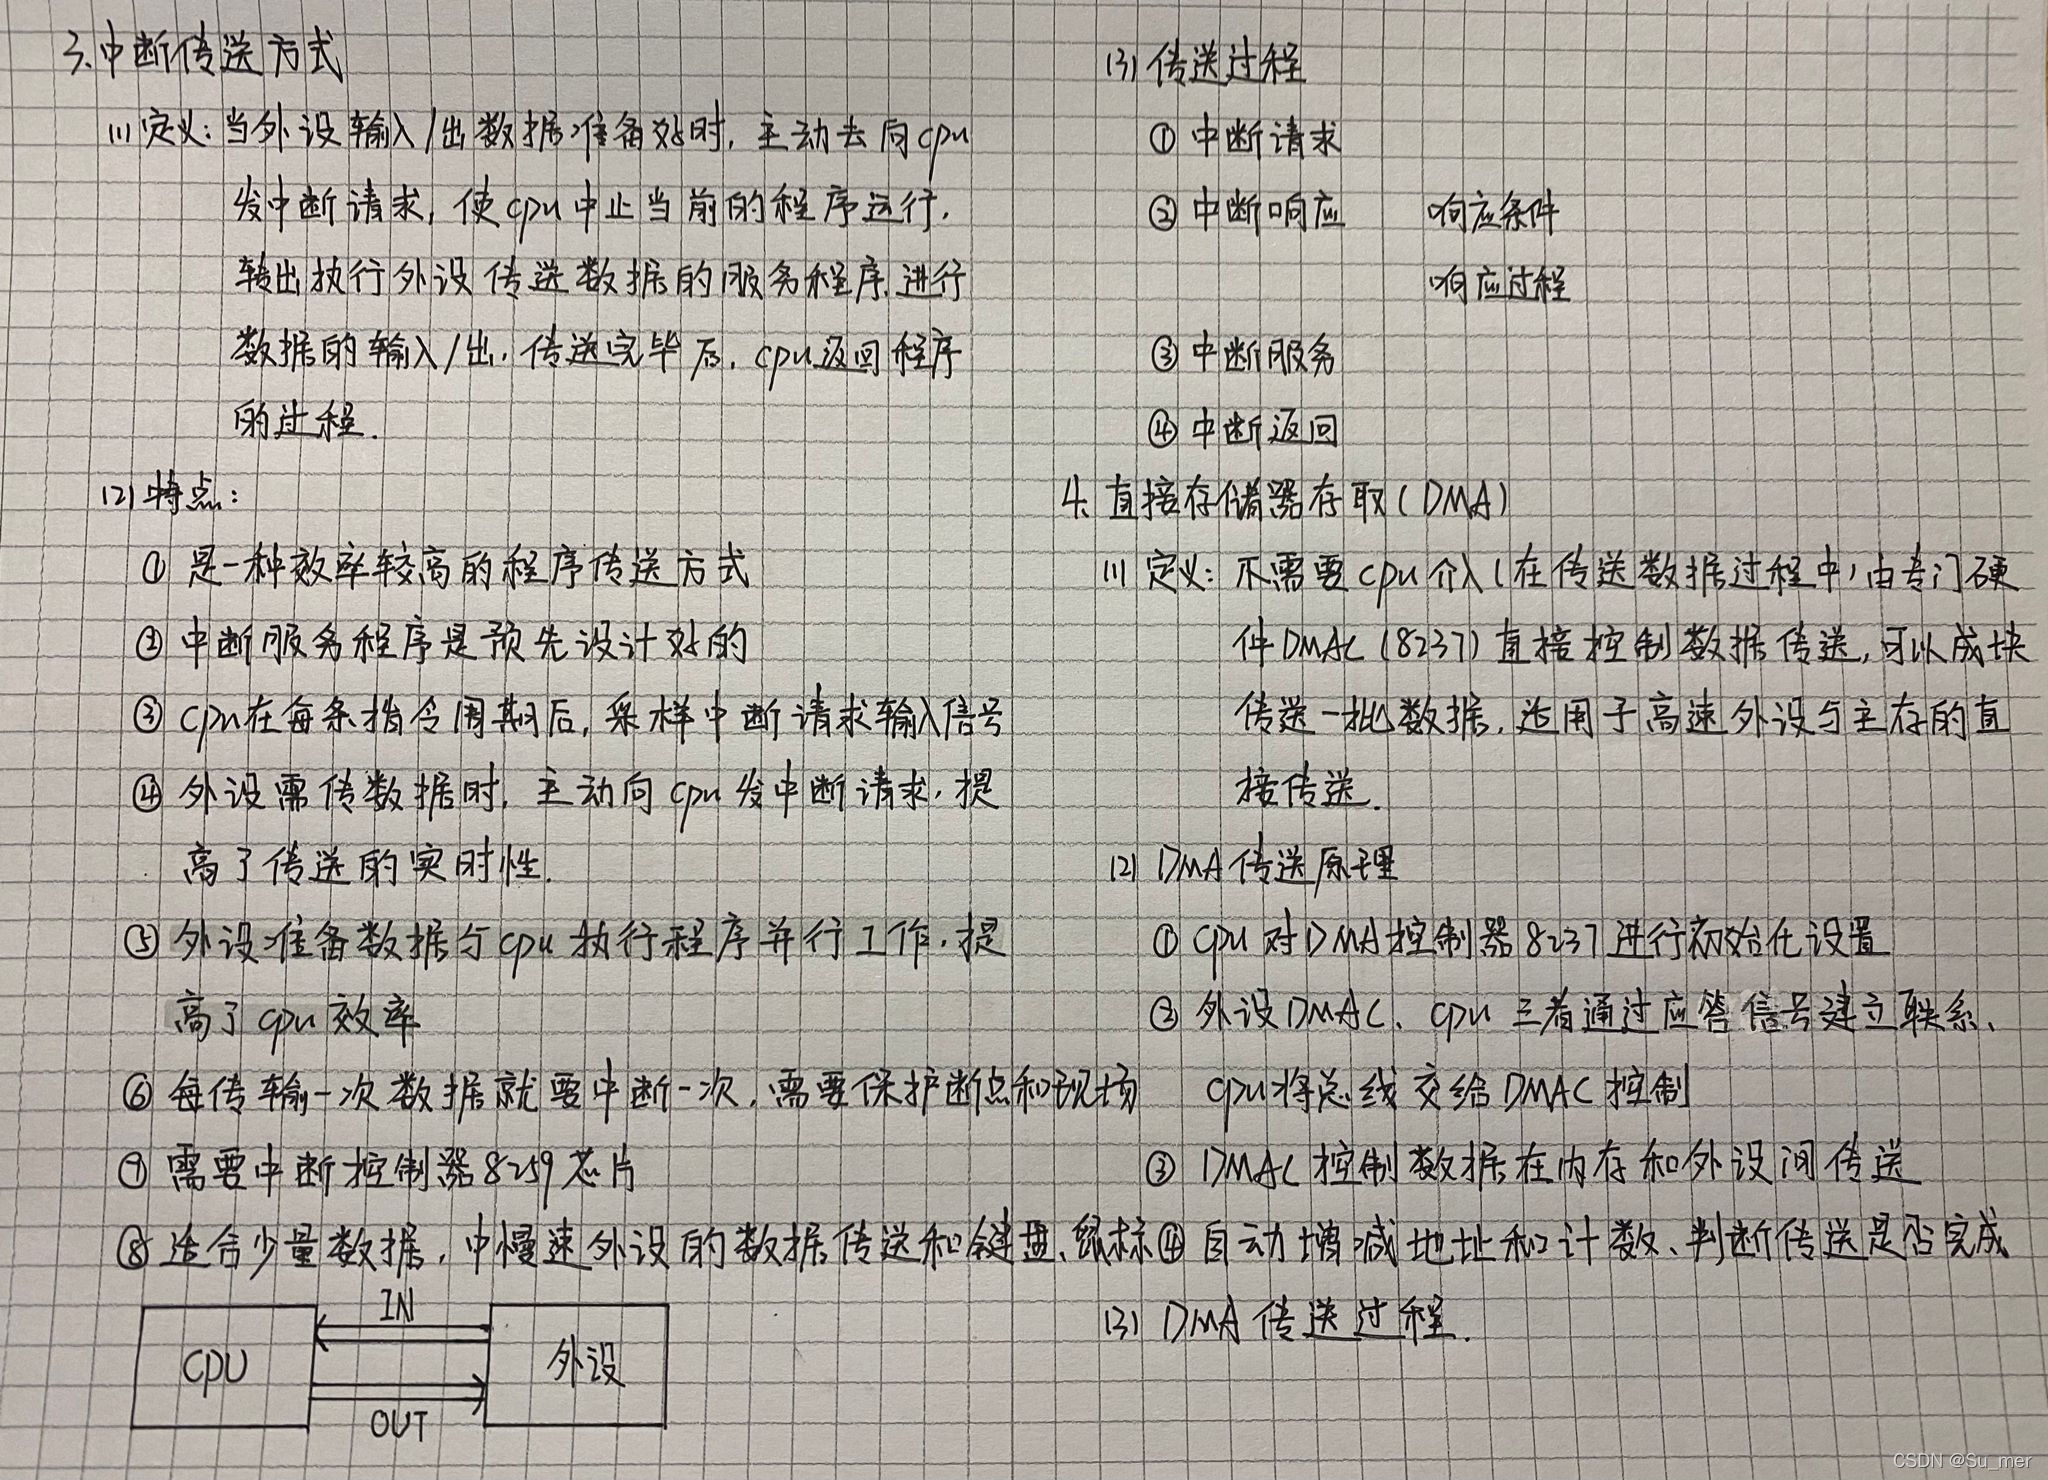 3.中断传送方式
(1)定义:当外设输入/出数据准备好时,主动去向cpu
发中断请求,使cpu中止当前的程序运行.
转出执行外设传送数据的服务程序.进行
数据的输入/出.传送完毕后.cpu返回程序
的过程.
(2)特点:
① 是一种效率较高的程序传送方式
② 中断服务程序是预先设计好的
③ cpu在每条指令周期后,采样中断请求输入信号
④ 外设需传数据时,主动向cpu发中断请求.提
高了传送的实时性.
⑤ 外设准备数据与cpu执行程序并行工作.提
高了cpu效率
⑥ 每传输一次数据就要中断一次.需要保护断点和现场
⑦ 需要中断控制器8259芯片
⑧ 适合少量数据,中慢速外设的数据传送和键盘、鼠标
IN
CPU
外设
OUT
(3)传送过程
① 中断请求
② 中断响应 响应条件
响应过程
③ 中断服务
④ 中断返回
4.直接存储器存取(DMA)
(1)定义:不需要cpu介入(在传送数据过程中)由专门硬
件DMAC(8237)直接控制数据传送,可以成块
传送一批数据.适用于高速外设与主存的直
接传送.
(2)DMA传送原理
① cpu对DMA控制器8237进行初始化设置
② 外设DMAC、cpu三者通过应答信号建立联系、
cpu将总线交给DMAC控制
③ DMAC控制数据在内存和外设间传送
④ 自动增减地址和计数、判断传送是否完成
(3)DMA传送过程.
CSDN @Su_mer